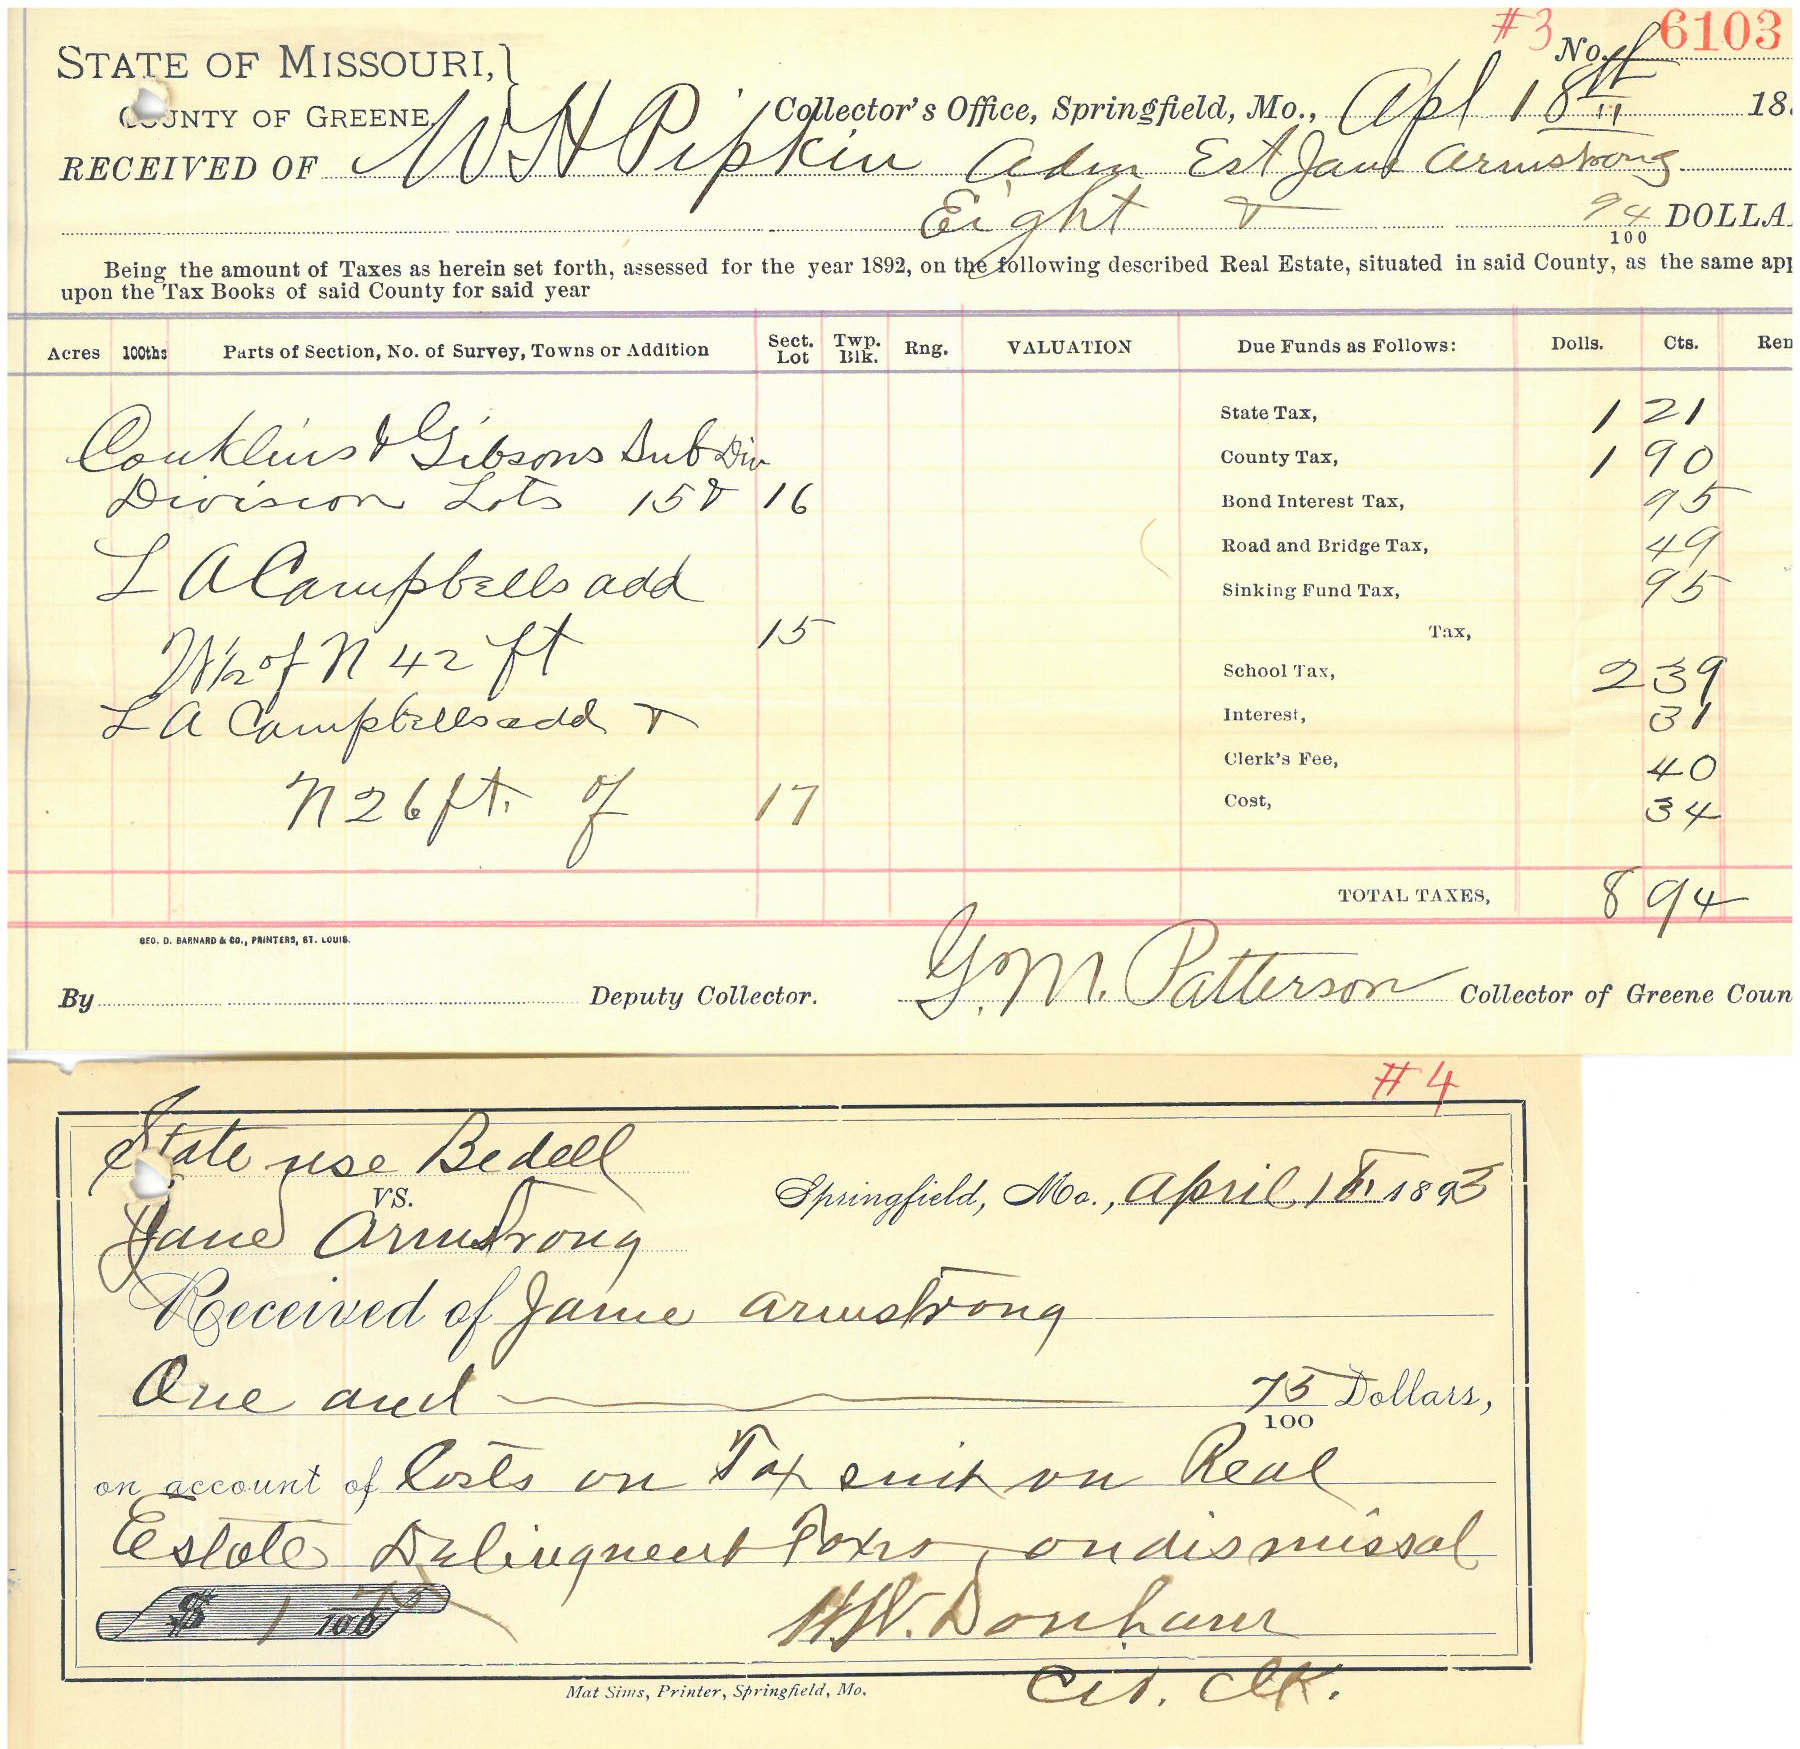 #3 No. 6103
STATE OF MISSOURI,
COUNTY OF GREENE, Collector's Office, Springfield, Mo., Apl 18th 18
RECEIVED OF W H Pipkin Adm Est Jane Armstrong
Eight & 94/100 DOLLA
Being the amount of Taxes as herein set forth, assessed for the year 1892, on the following described Real Estate, situated in said County, as the same app
upon the Tax Books of said County for said year
Acres 100ths Parts of Section, No. of Survey, Towns or Addition Sect. Lot Twp. Blk. Rng. VALUATION Due Funds as Follows: Dolls. Cts. Rem
State Tax, 1 21
Conklins & Gibsons Sub Div County Tax, 1 90
Division Lots 15 & 16 Bond Interest Tax, 95
Road and Bridge Tax, 49
L A Campbells add Sinking Fund Tax, 95
15 Tax,
W 1/2 of N 42 ft School Tax, 2 39
L A Campbells add & Interest, 31
Clerk's Fee, 40
N 26 ft. of 17 Cost, 34
TOTAL TAXES, 8 94
GEO. D. BARNARD & CO., PRINTERS, ST. LOUIS.
By Deputy Collector. G. M. Patterson Collector of Greene Coun
#4
State use Bedell
vs. Springfield, Mo., April 18, 1893
Jane Armstrong
Received of Jane Armstrong
One and 75/100 Dollars,
on account of Costs on Tax suit on Real
Estate Delinquent Taxes, on dismissal
$ 1 75/100 H. W. Donham
Mat Sims, Printer, Springfield, Mo. Cir. Clk.